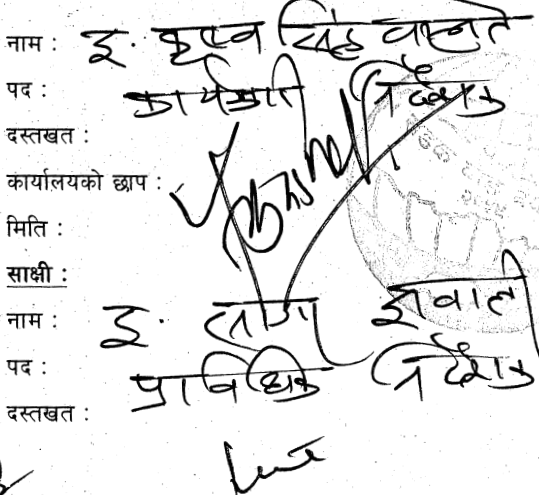 नाम : इ. कृष्ण सिंह बस्नेत
पद : कार्यकारी निर्देशक
दस्तखत :
कार्यालयको छाप :
मिति :
साक्षी :
नाम : इ. ज्ञवाली
पद : प्राविधिक निर्देशक
दस्तखत :